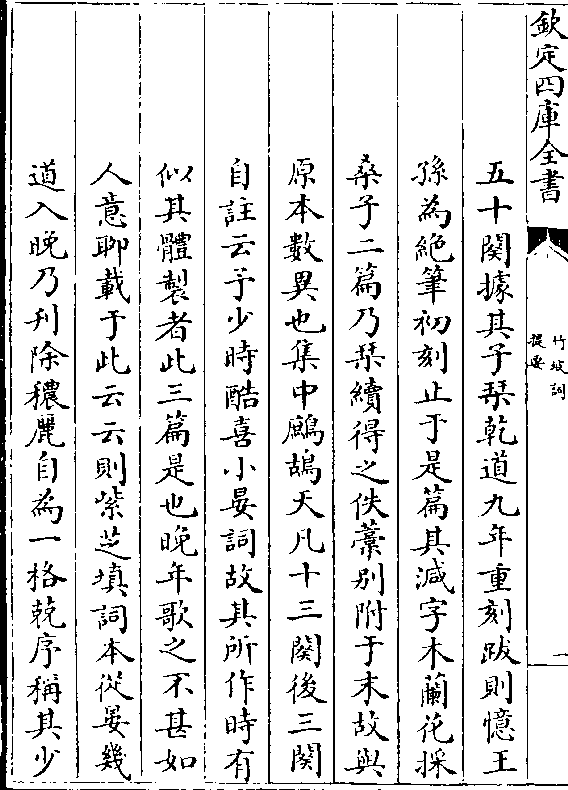 欽定四庫全書
竹坡詞
提要
一
五十闋據其子栞乾道九年重刻跋則憶王
孫為絶筆初刻止于是篇其減字木蘭花採
桑子二篇乃栞續得之佚藁别附于末故與
原本數異也集中鷓鴣天凡十三闋後三闋
自註云予少時酷喜小晏詞故其所作時有
似其體製者此三篇是也晚年歌之不甚如
人意聊載于此云云則紫芝填詞本從晏幾
道入晚乃刋除穠麗自為一格兢序稱其少